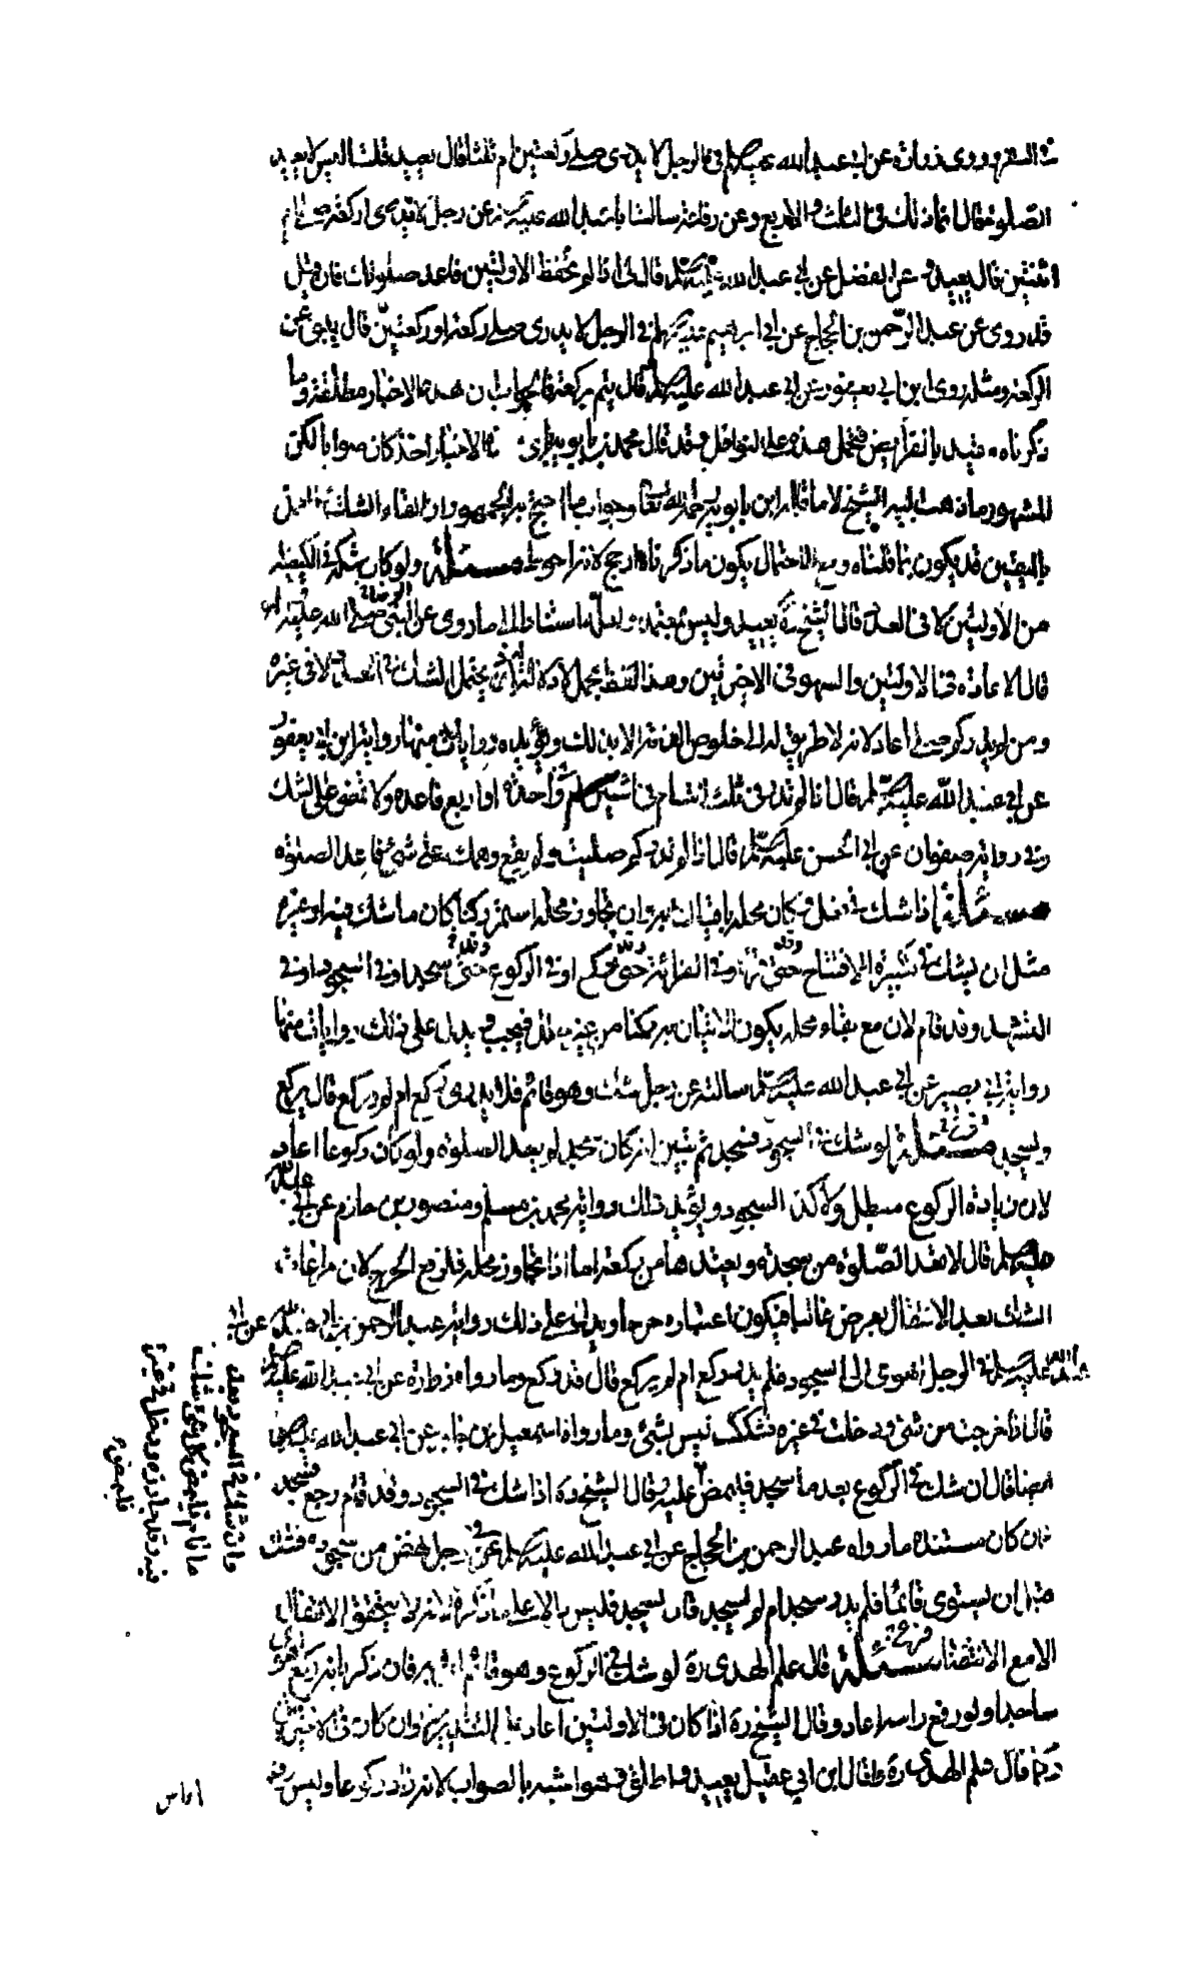 في السفر وروى زرارة عن ابي عبد الله عليه السلم في الرجل لا يدرى صلى ركعتين ام ثلثا قال يعيد قلت اليس لا يعيد
الصلوة فقال انما ذلك في الثلث والاربع وعن رفاعة سالت ابا عبد الله عليه السلم عن رجل لا يدرى اركعة صلى ام
اثنتين قال يعيد وعن الفضل عن ابي عبد الله عليه السلم قال لي اذا لم تحفظ الاولتين فاعد صلوتك فان قيل
قد روى عن عبد الرحمن بن الحجاج عن ابي ابرهيم عليه السلم في الرجل لا يدرى صلى ركعة او ركعتين قال يبنى على
الركعة ومثله روى ابن ابي يعفور عن ابي عبد الله عليه السلم قال يتم بركعة فالجواب ان هذه الاخبار مطلقة وما
ذكرناه مقيد بالفرايض فتحمل هذه على النوافل وقد قال محمد بن بابويه باى هذه الاخبار اخذ كان صوابا لكن
المشهور ما ذهب اليه الشيخ لا ما قاله ابن بابويه رحمه الله تعالى وجواب ما احتج به الجمهور ان القاء الشك
باليقين قد يكون بما قلناه ومع الاحتمال يكون ما ذكرناه ارجح لانه احوط مسئلة ولو كان شكه في الكيفية
من الاولتين لا في العدد قال الشيخ ره يعيد وليس بمعتمد ولعله استنادا الى ما روى عن الرضا عليه السلم
قال الاعادة في الاولتين والسهو في الاخيرتين وهذا اللفظ مجمل لا دلالة فيه اذ يحتمل الشك في العدد لا في غيره
ومن لم يدر كم صلى اعاد لانه لا طريق له الى خلوص الذمة الا بذلك ويؤيده روايات منها رواية ابن ابي يعفور
عن ابي عبد الله عليه السلم قال اذا لم تدر في ثلث انت ام في اثنتين ام في واحدة او اربع فاعد ولا تمض على الشك
وفي رواية صفوان عن ابي الحسن عليه السلم قال اذا لم تدر كم صليت ولم يقع وهمك على شئ فاعد الصلوة
مسئلة اذا شك في فعل فان كان محله باقيا اتى به وان تجاوز محله استمر ركنا كان ما شك فيه او غيره
مثل ان يشك في تكبيرة الافتتاح وقد قرأ او في القرائة وقد ركع او في الركوع وقد سجد او في السجود او في
التشهد وقد قام لان مع بقاء محله يكون الاتيان به ممكنا من غير خلل فيجب ويدل على ذلك روايات منها
رواية ابي بصير عن ابي عبد الله عليه السلم سالته عن رجل شك وهو قائم فلا يدرى ركع ام لم يركع قال يركع
ويسجد مسئلة لو شك في السجود فسجد ثم تبين انه كان سجد لم يعد الصلوة ولو كان ركوعا اعاد
لان زيادة الركوع مبطل ولا كذا السجود ويؤيد ذلك رواية محمد بن مسلم ومنصور بن حازم عن ابي عبد الله
عليه السلم قال لا تعد الصلوة من سجدة وتعيدها من ركعة اما اذا تجاوز محله فلرفع الحرج لان مراعات
الشك بعد الانتقال يعرض غالبا فيكون اعتباره حرجا ويدل على ذلك رواية عبد الرحمن بن ابي عبد الله عن ابي
عبد الله عليه السلم في الرجل اهوى الى السجود فلم يدر ركع ام لم يركع قال قد ركع وما رواه زرارة عن ابي عبد الله عليه السلم
قال اذا خرجت من شئ ودخلت في غيره فشكك ليس بشئ وما رواه اسمعيل بن جابر عن ابي عبد الله عليه السلم
ايضا قال ان شك في الركوع بعد ما سجد فليمض عليه وقال الشيخ ره اذا شك في السجود وقد قام رجع فسجد
فان كان مستنده ما رواه عبد الرحمن بن الحجاج عن ابي عبد الله عليه السلم في رجل نهض من سجوده فشك
قبل ان يستوى قائما فلم يدر سجد ام لم يسجد قال يسجد فليس دالا على ما ذكره لانه لا يتحقق الانتقال
الا مع الانتصاب مسئلة قال علم الهدى ره لو شك في الركوع وهو قائم اتى به فان ذكر بانه ركع اهوى
ساجدا ولو رفع راسه اعاد وقال الشيخ ره اذا كان في الاولتين اعاد على التقديرين وان كان في الاخيرتين
فكما قال علم الهدى ره وقال ابن ابي عقيل يعيد واطلق وهو اشبه بالصواب لانه زاد ركوعا وليس رفع
الراس
وان شك في السجود بعد
ما قام فليمض كل شئ شك
فيه وقد جاوزه ودخل في غيره
فليمض